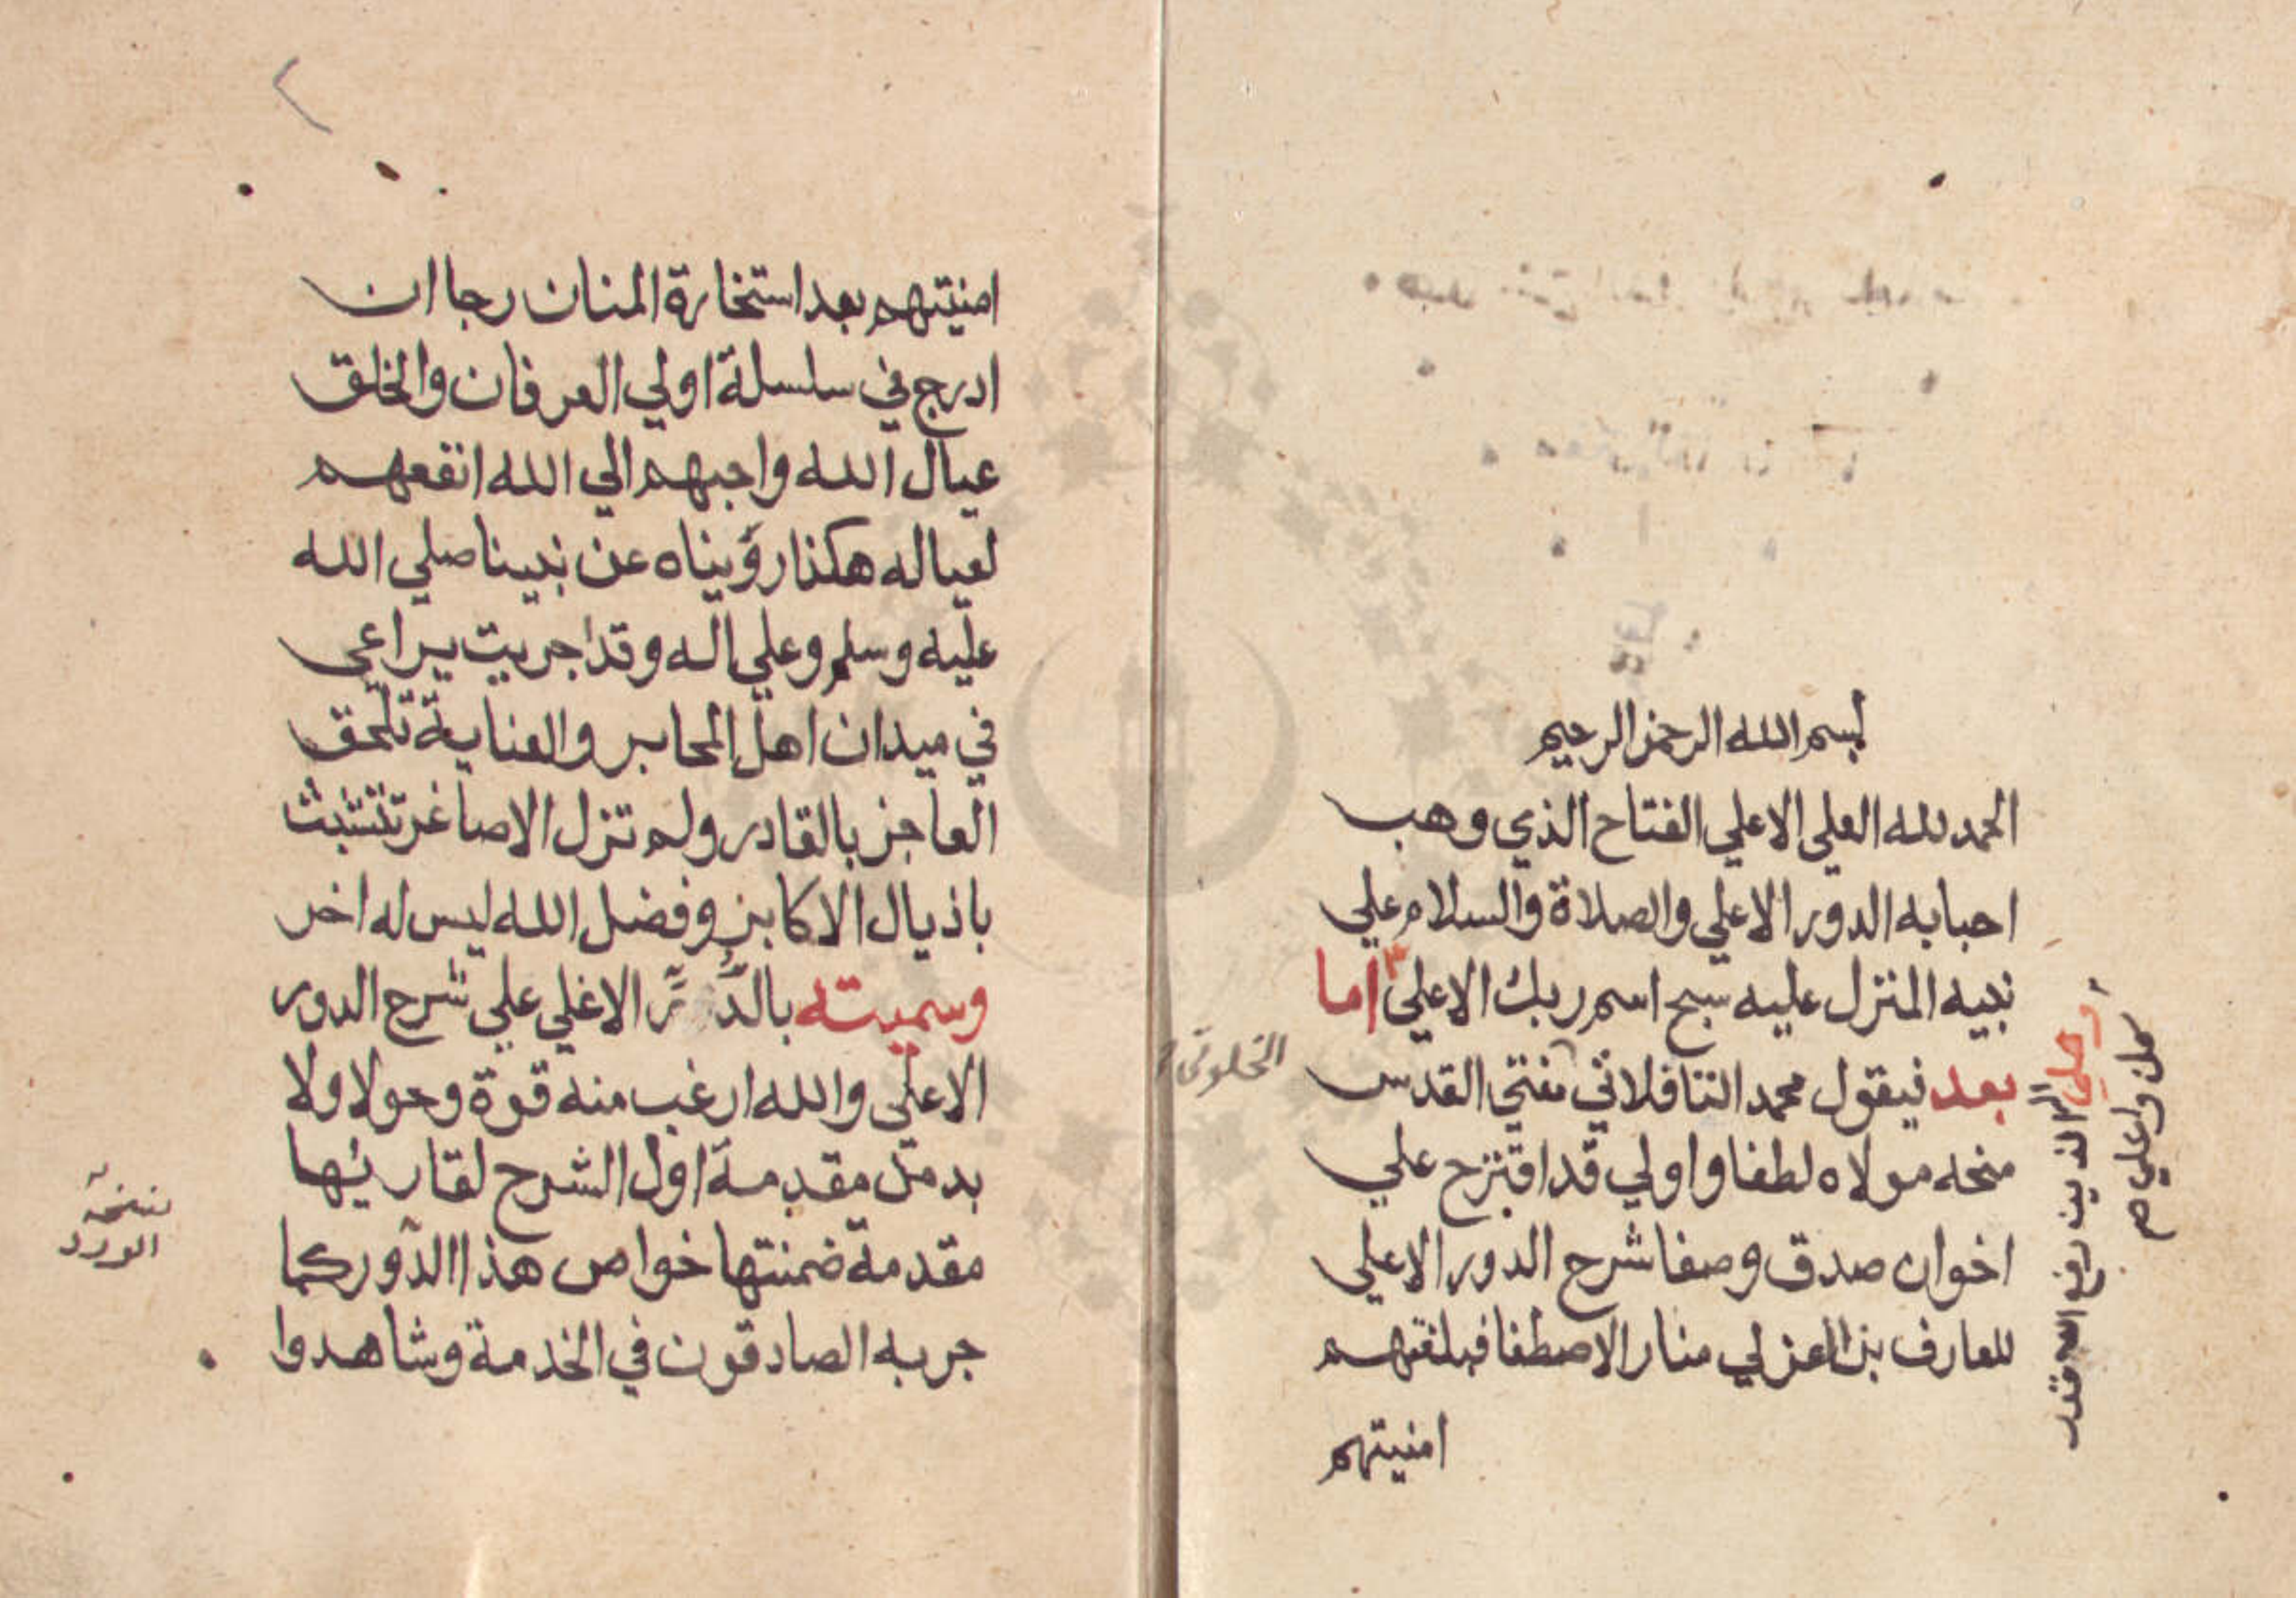 بسم الله الرحمن الرحيم
الحمد لله العلي الاعلي الفتاح الذي وهب
احبابه الدور الاعلي والصلاة والسلام علي
نبيه المنزل عليه سبح اسم ربك الاعلي اما
بعد فيقول محمد التنافلاتي مفتي القدس
منحه مولاه لطفا واولي قد اقترح علي
اخوان صدق وصفا شرح الدور الاعلي
للعارف بن العزلي منار الاصطفا فبلغتهم
امنيتهم
وعلي اله الذين رفع الله قدر
كل واعلي صح
الخلوتي
امنيتهم بعد استخارة المنان رجا ان
ادرج في سلسلة اولي العرفان والخلق
عيال الله واحبهم الي الله انفعهم
لعياله هكذا رويناه عن نبينا صلي الله
عليه وسلم وعلي اله وقد اجريت يراعي
في ميدان اهل المحابر والعناية تلحق
العاجز بالقادر ولم تزل الاصاغر تتشبث
باذيال الاكابر وفضل الله ليس له اخر
وسميته بالدر الاغلي علي شرح الدور
الاعلي والله ارغب منه قوة وحولا ولا
بد من مقدمة اول الشرح لقاريها
مقدمة ضمنتها خواص هذا الدور كما
جربه الصادقون في الخدمة وشاهدوا
نسخة
الورد